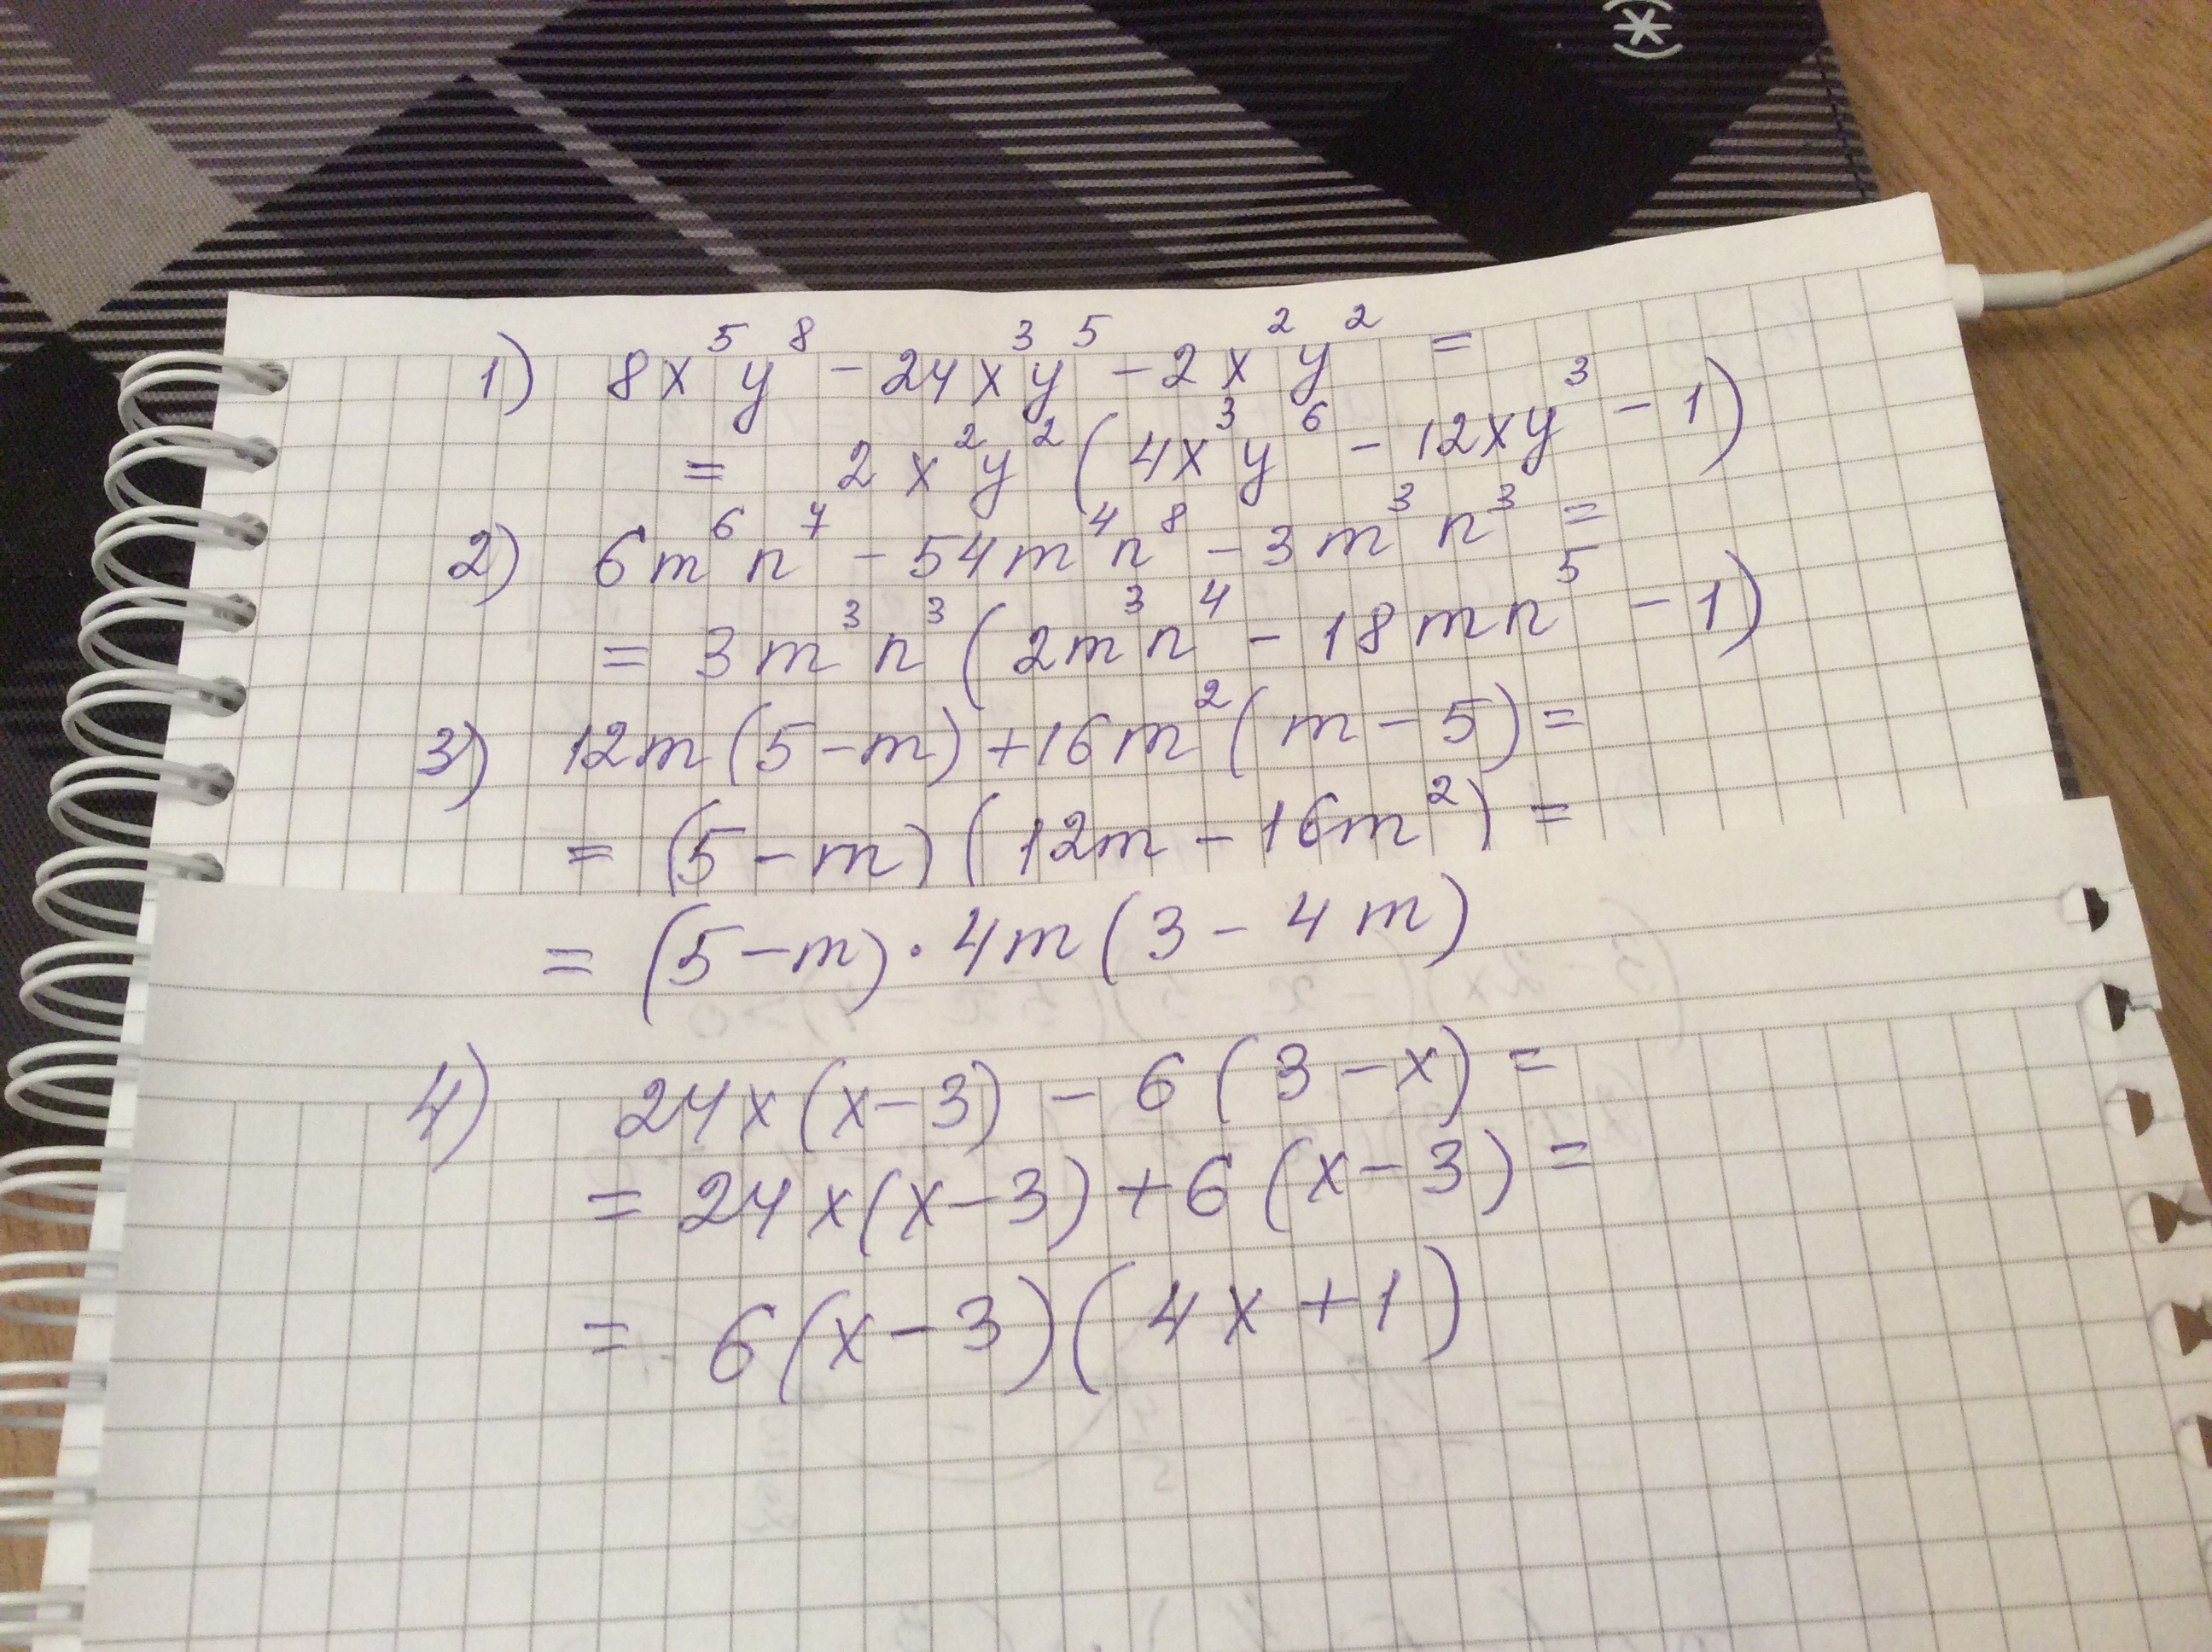 (*)
1) 8x⁵y⁸ - 24x³y⁵ - 2x²y² =
= 2x²y²(4x³y⁶ - 12xy³ - 1)
2) 6m⁶n⁷ - 54m⁴n⁸ - 3m³n³ =
= 3m³n³(2m³n⁴ - 18mn⁵ - 1)
3) 12m(5-m) + 16m²(m-5) =
= (5-m)(12m - 16m²) =
= (5-m)·4m(3 - 4m)
4) 24x(x-3) - 6(3-x) =
= 24x(x-3) + 6(x-3) =
= 6(x-3)(4x+1)